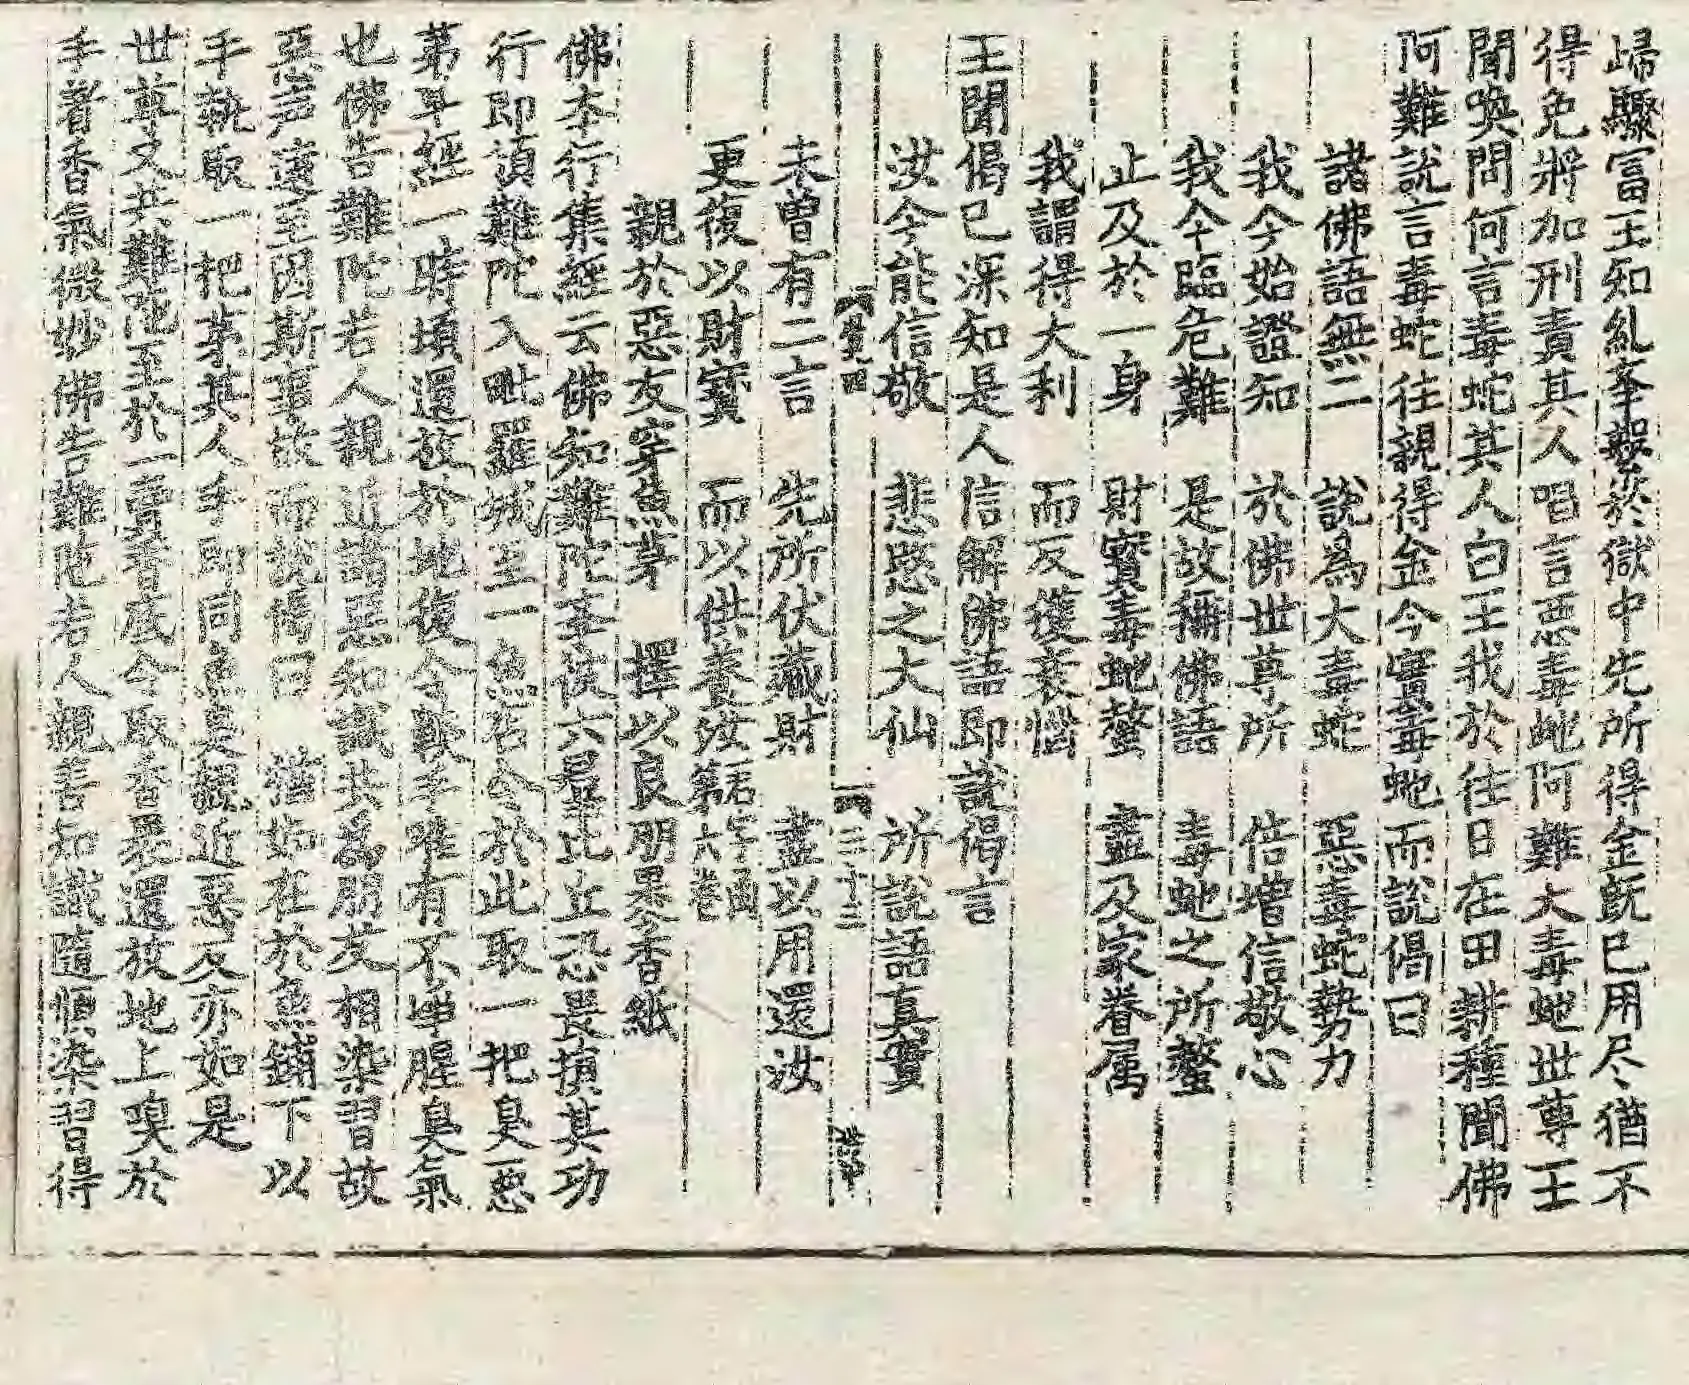 歸驟富王知糺牽繫於獄中先所得金既已用尽猶不
得免將加刑責其人唱言惡毒蛇阿難大毒蛇世尊王
聞喚問何言毒蛇其人白王我於往日在田耕種聞佛
阿難說言毒蛇往親得金今實毒蛇而說偈曰
諸佛語無二　說爲大毒蛇　惡毒蛇勢力
我今始證知　於佛世尊所　倍增信敬心
我今臨危難　是故稱佛語　毒蛇之所螫
止及於一身　財寶毒蛇螫　盡及家眷属
我謂得大利　而反獲衰惱
王聞偈已深知是人信解佛語即說偈言
汝今能信敬　悲愍之大仙　所說語真實
三十三
未曾有二言　先所伏藏財　盡以用還汝
更復以財寶　而以供養汝 第六卷
親於惡友穿魚茅　擇以良朋果令香紙
佛本行集經云佛知難陀宰使六羣比丘恐畏損其功
行即頂難陀入毗羅城至一魚店令於此取一把臭惡
茅草經一時頃還放於地復令齅手唯有不淨腥臭氣
也佛告難陀若人親近諸惡知識共爲朋友相染習故
惡声遠至因斯事故而說偈曰　猶如在於魚鋪下以
手執取一把茅其人手即同魚臭親近惡友亦如是
世尊又共難陀至於一賣香店令取香裹還放地上嗅於
手著香氣微妙佛告難陀若人親善知識隨順染習得